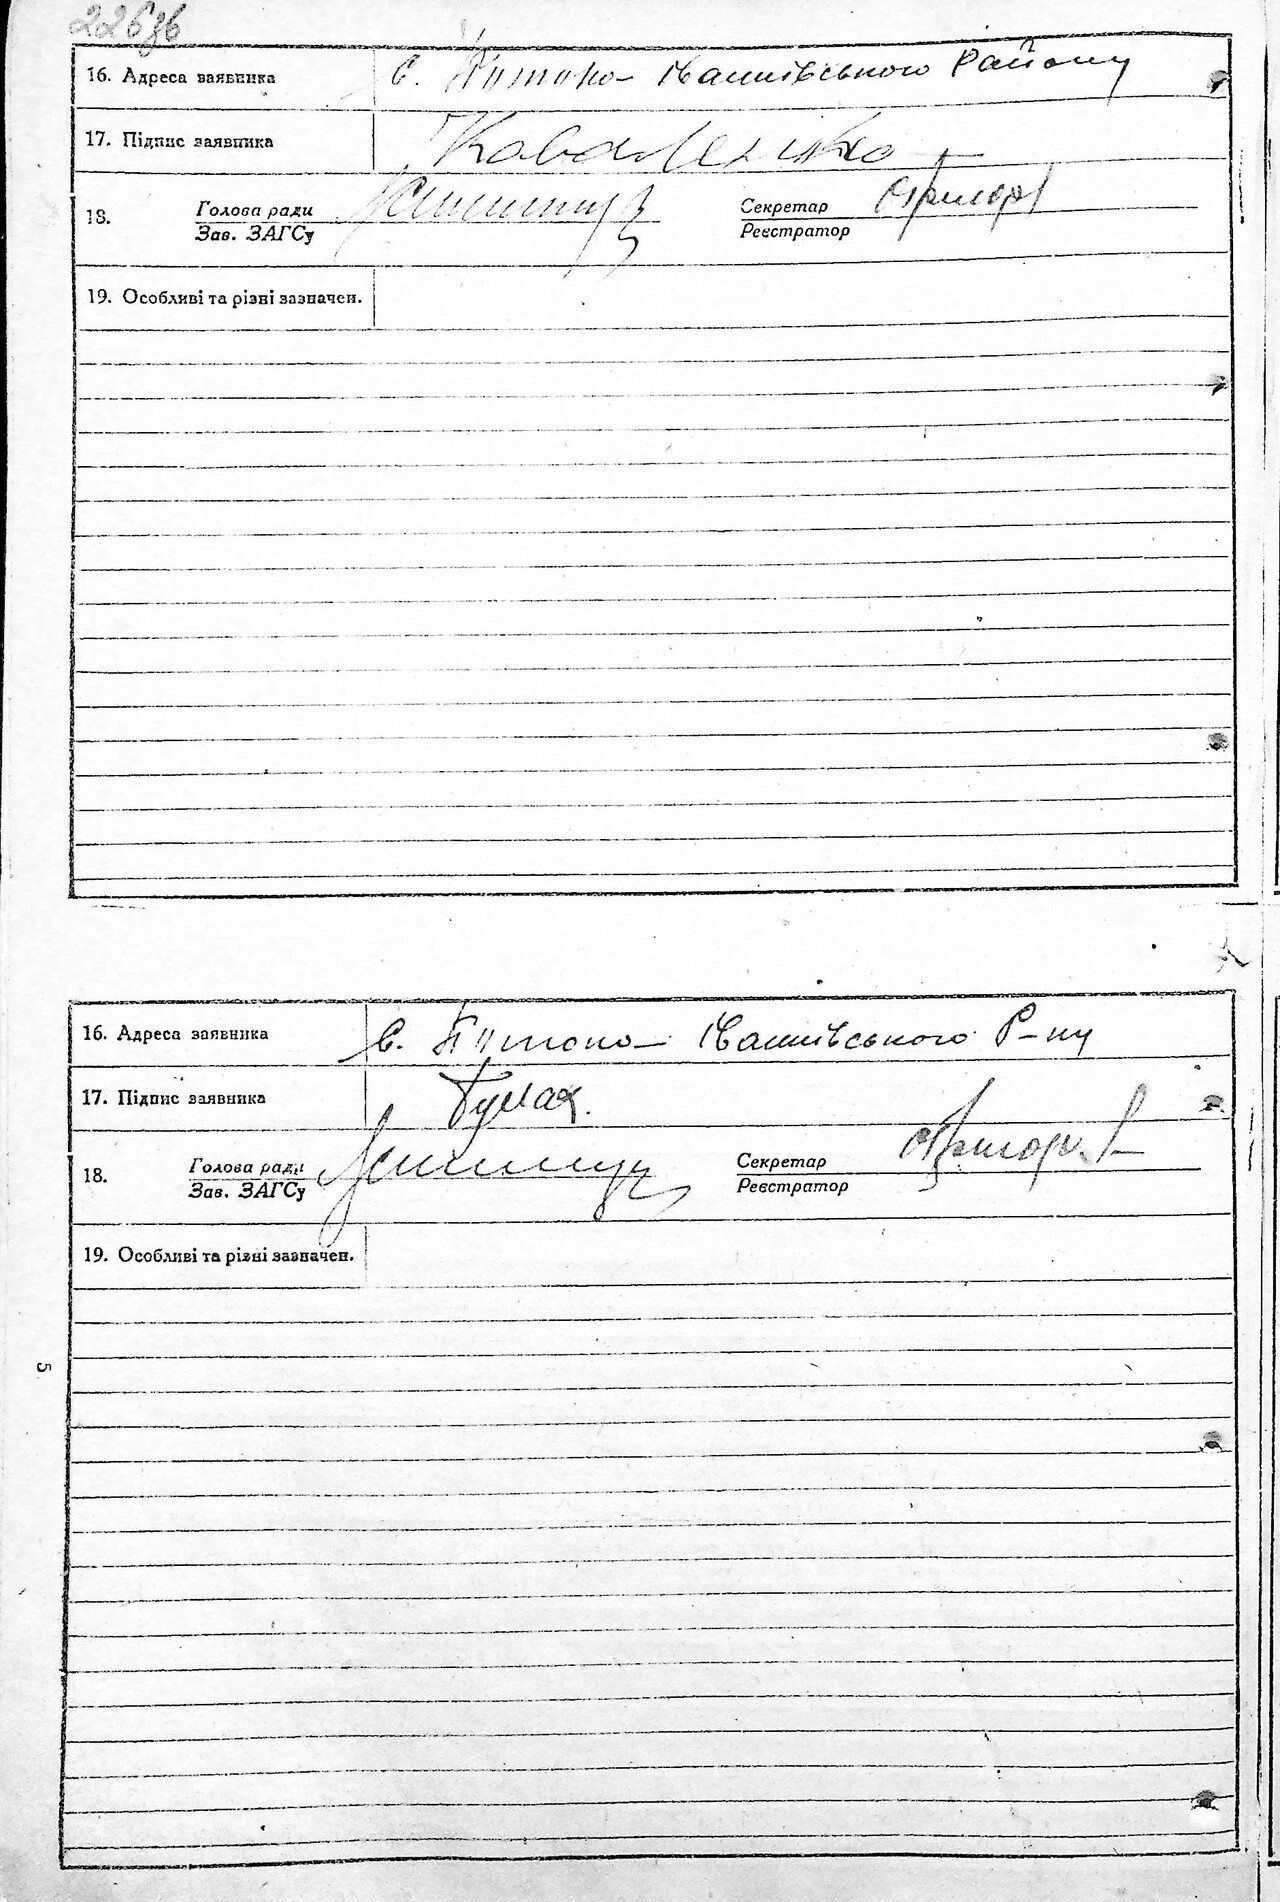 226зв
16. Адреса заявника с. Іваниківського Району
17. Підпис заявника Коваленко
18. Голова ради Секретар
Зав. ЗАГСу Реєстратор
19. Особливі та різні зазначен.
16. Адреса заявника с. Іваниківського Р-ну
17. Підпис заявника
18. Голова ради Секретар
Зав. ЗАГСу Реєстратор
19. Особливі та різні зазначен.
5